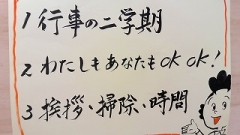 1 行事の二学期
2 わたしもあなたもOKOK!
3 挨拶、掃除、時間